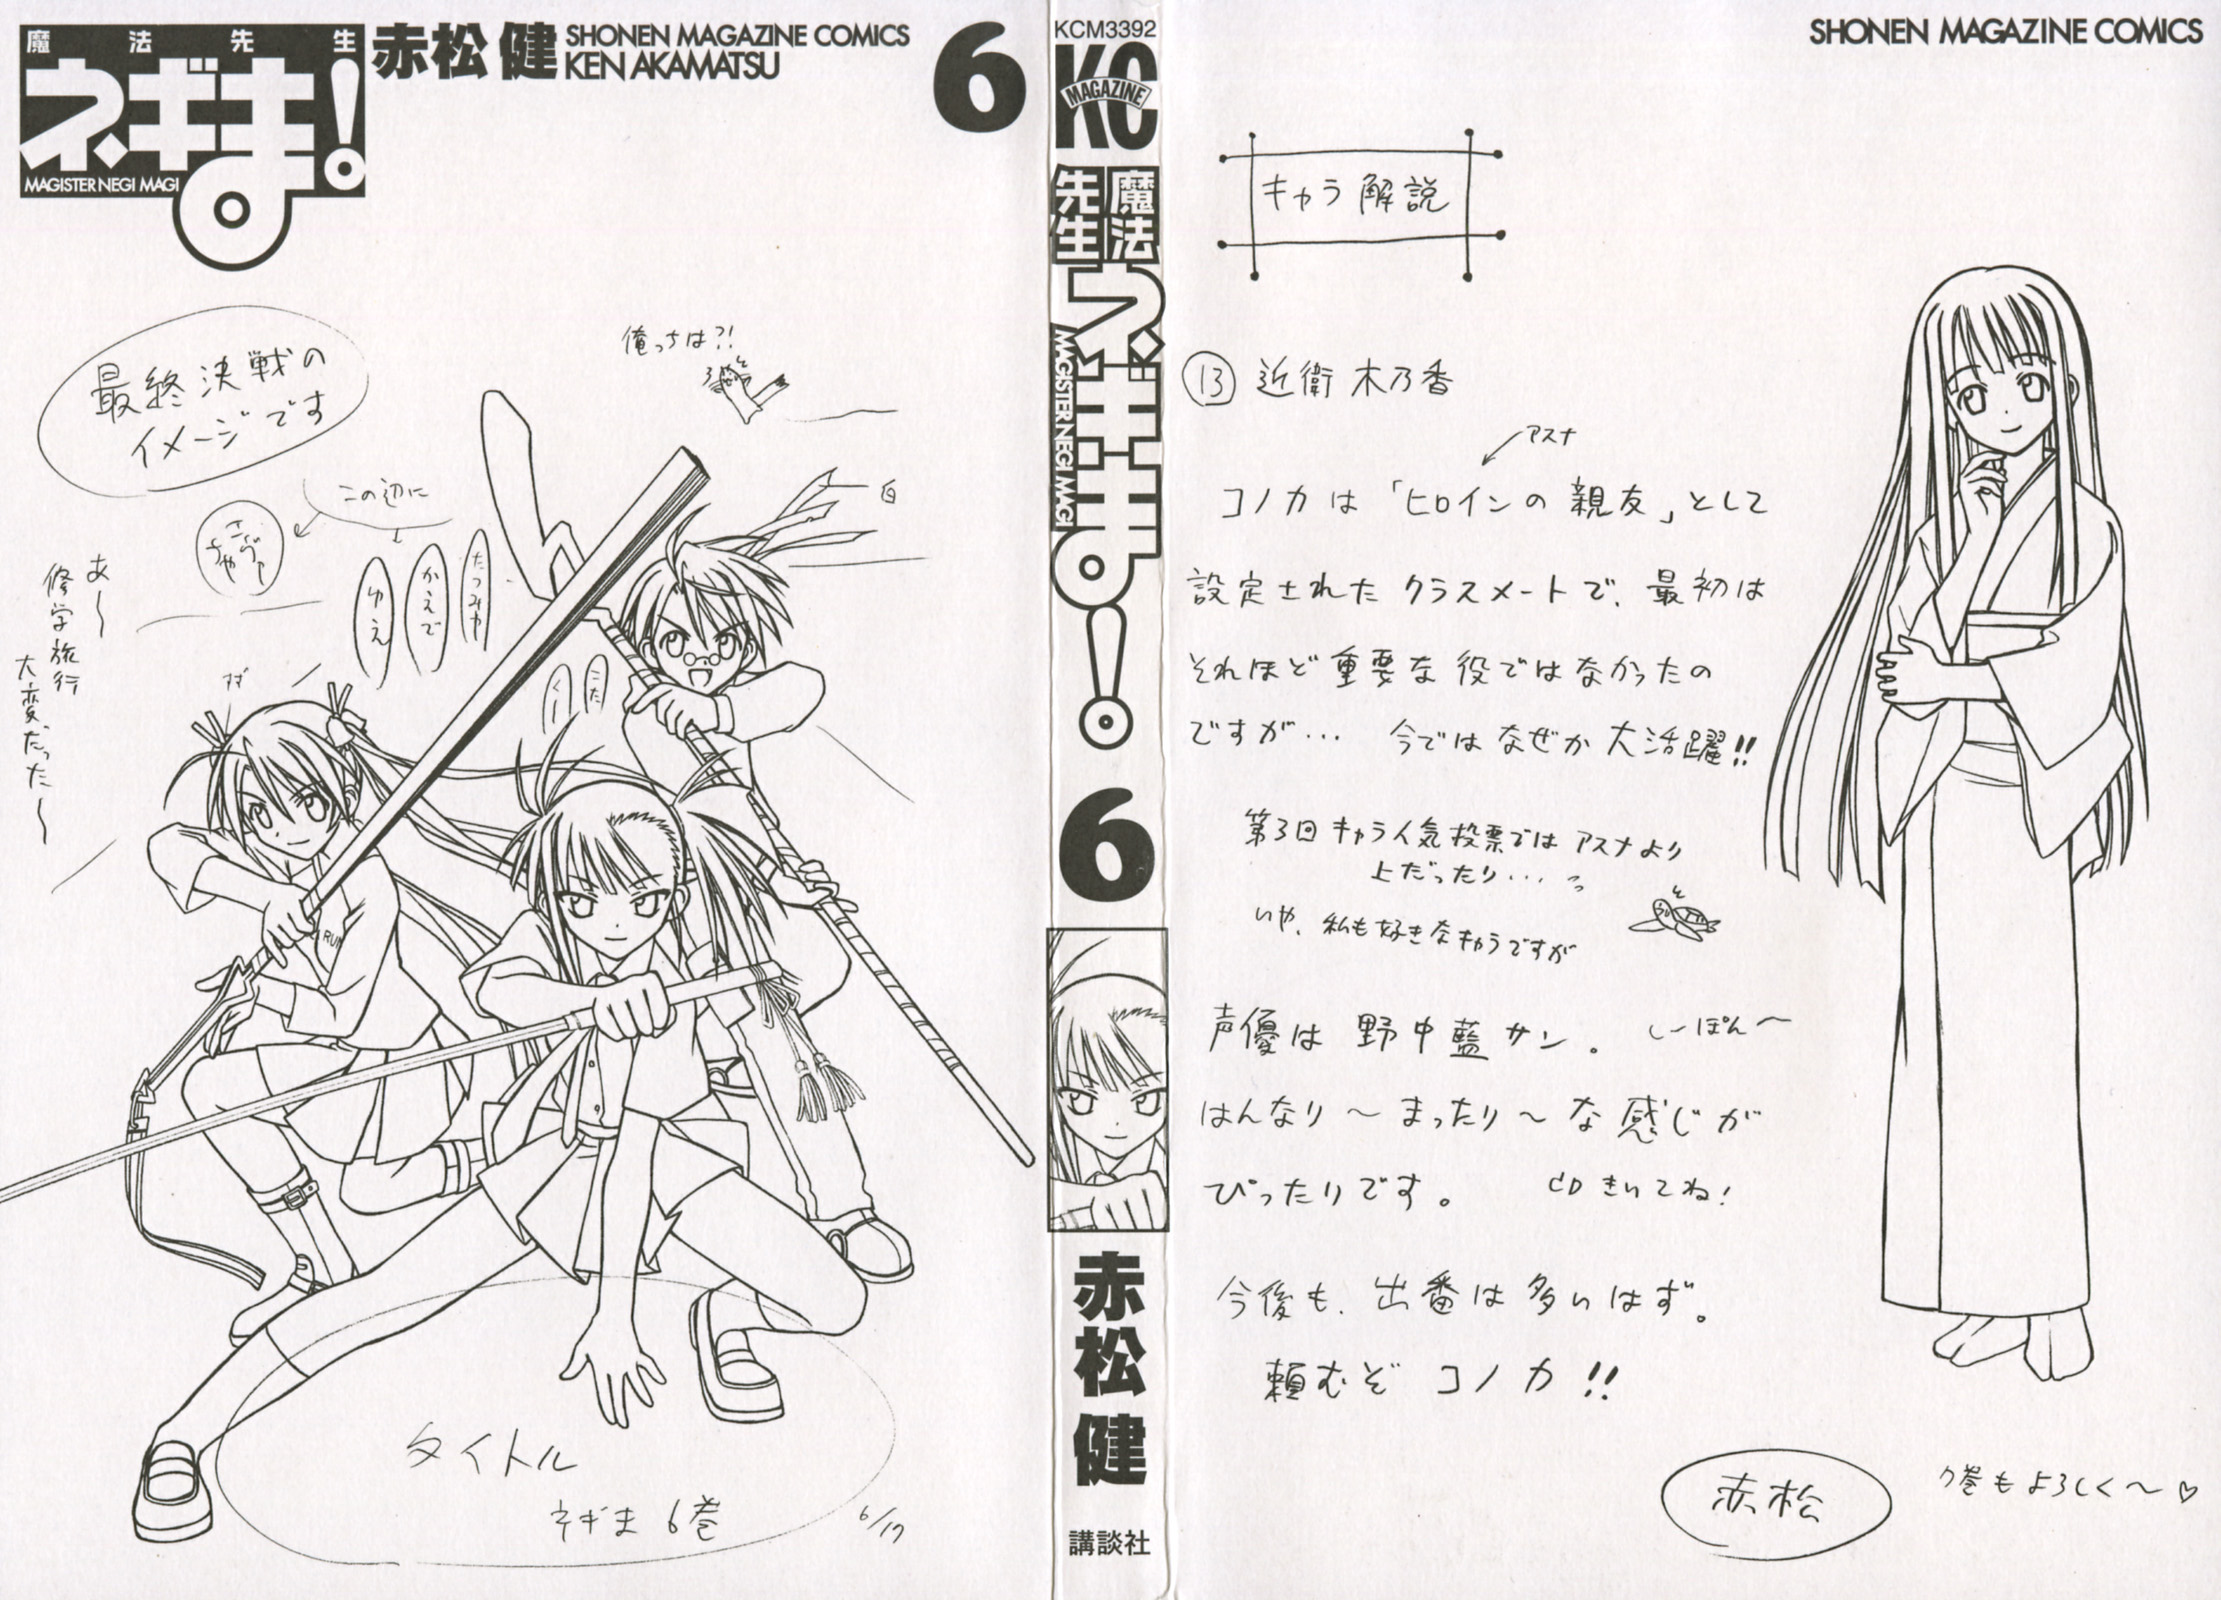 魔法先生
ネギま!
MAGISTER NEGI MAGI
赤松 健
SHONEN MAGAZINE COMICS
KEN AKAMATSU
6
最終決戦の
イメージです
俺っちは?!
白
この辺に
たつみや
かえで
ゆえ
こた
くー
あ〜
修学旅行
大変だった〜
タイトル
ネギま 6巻
6/17
KCM3392
KC
MAGAZINE
魔法先生
ネギま!
MAGISTER NEGI MAGI
6
赤松 健
講談社
SHONEN MAGAZINE COMICS
キャラ解説
13 近衛 木乃香
アスナ
コノカは「ヒロインの親友」として
設定されたクラスメートで、最初は
それほど重要な役ではなかったの
ですが… 今ではなぜか大活躍!!
第3回キャラ人気投票ではアスナより
上だったり…
いや、私も好きなキャラですが
声優は野中藍サン。 しーぽん〜
はんなり〜まったり〜な感じが
ぴったりです。 CDきいてね!
今後も、出番は多いはず。
頼むぞ コノカ!!
赤松
7巻もよろしく〜♡